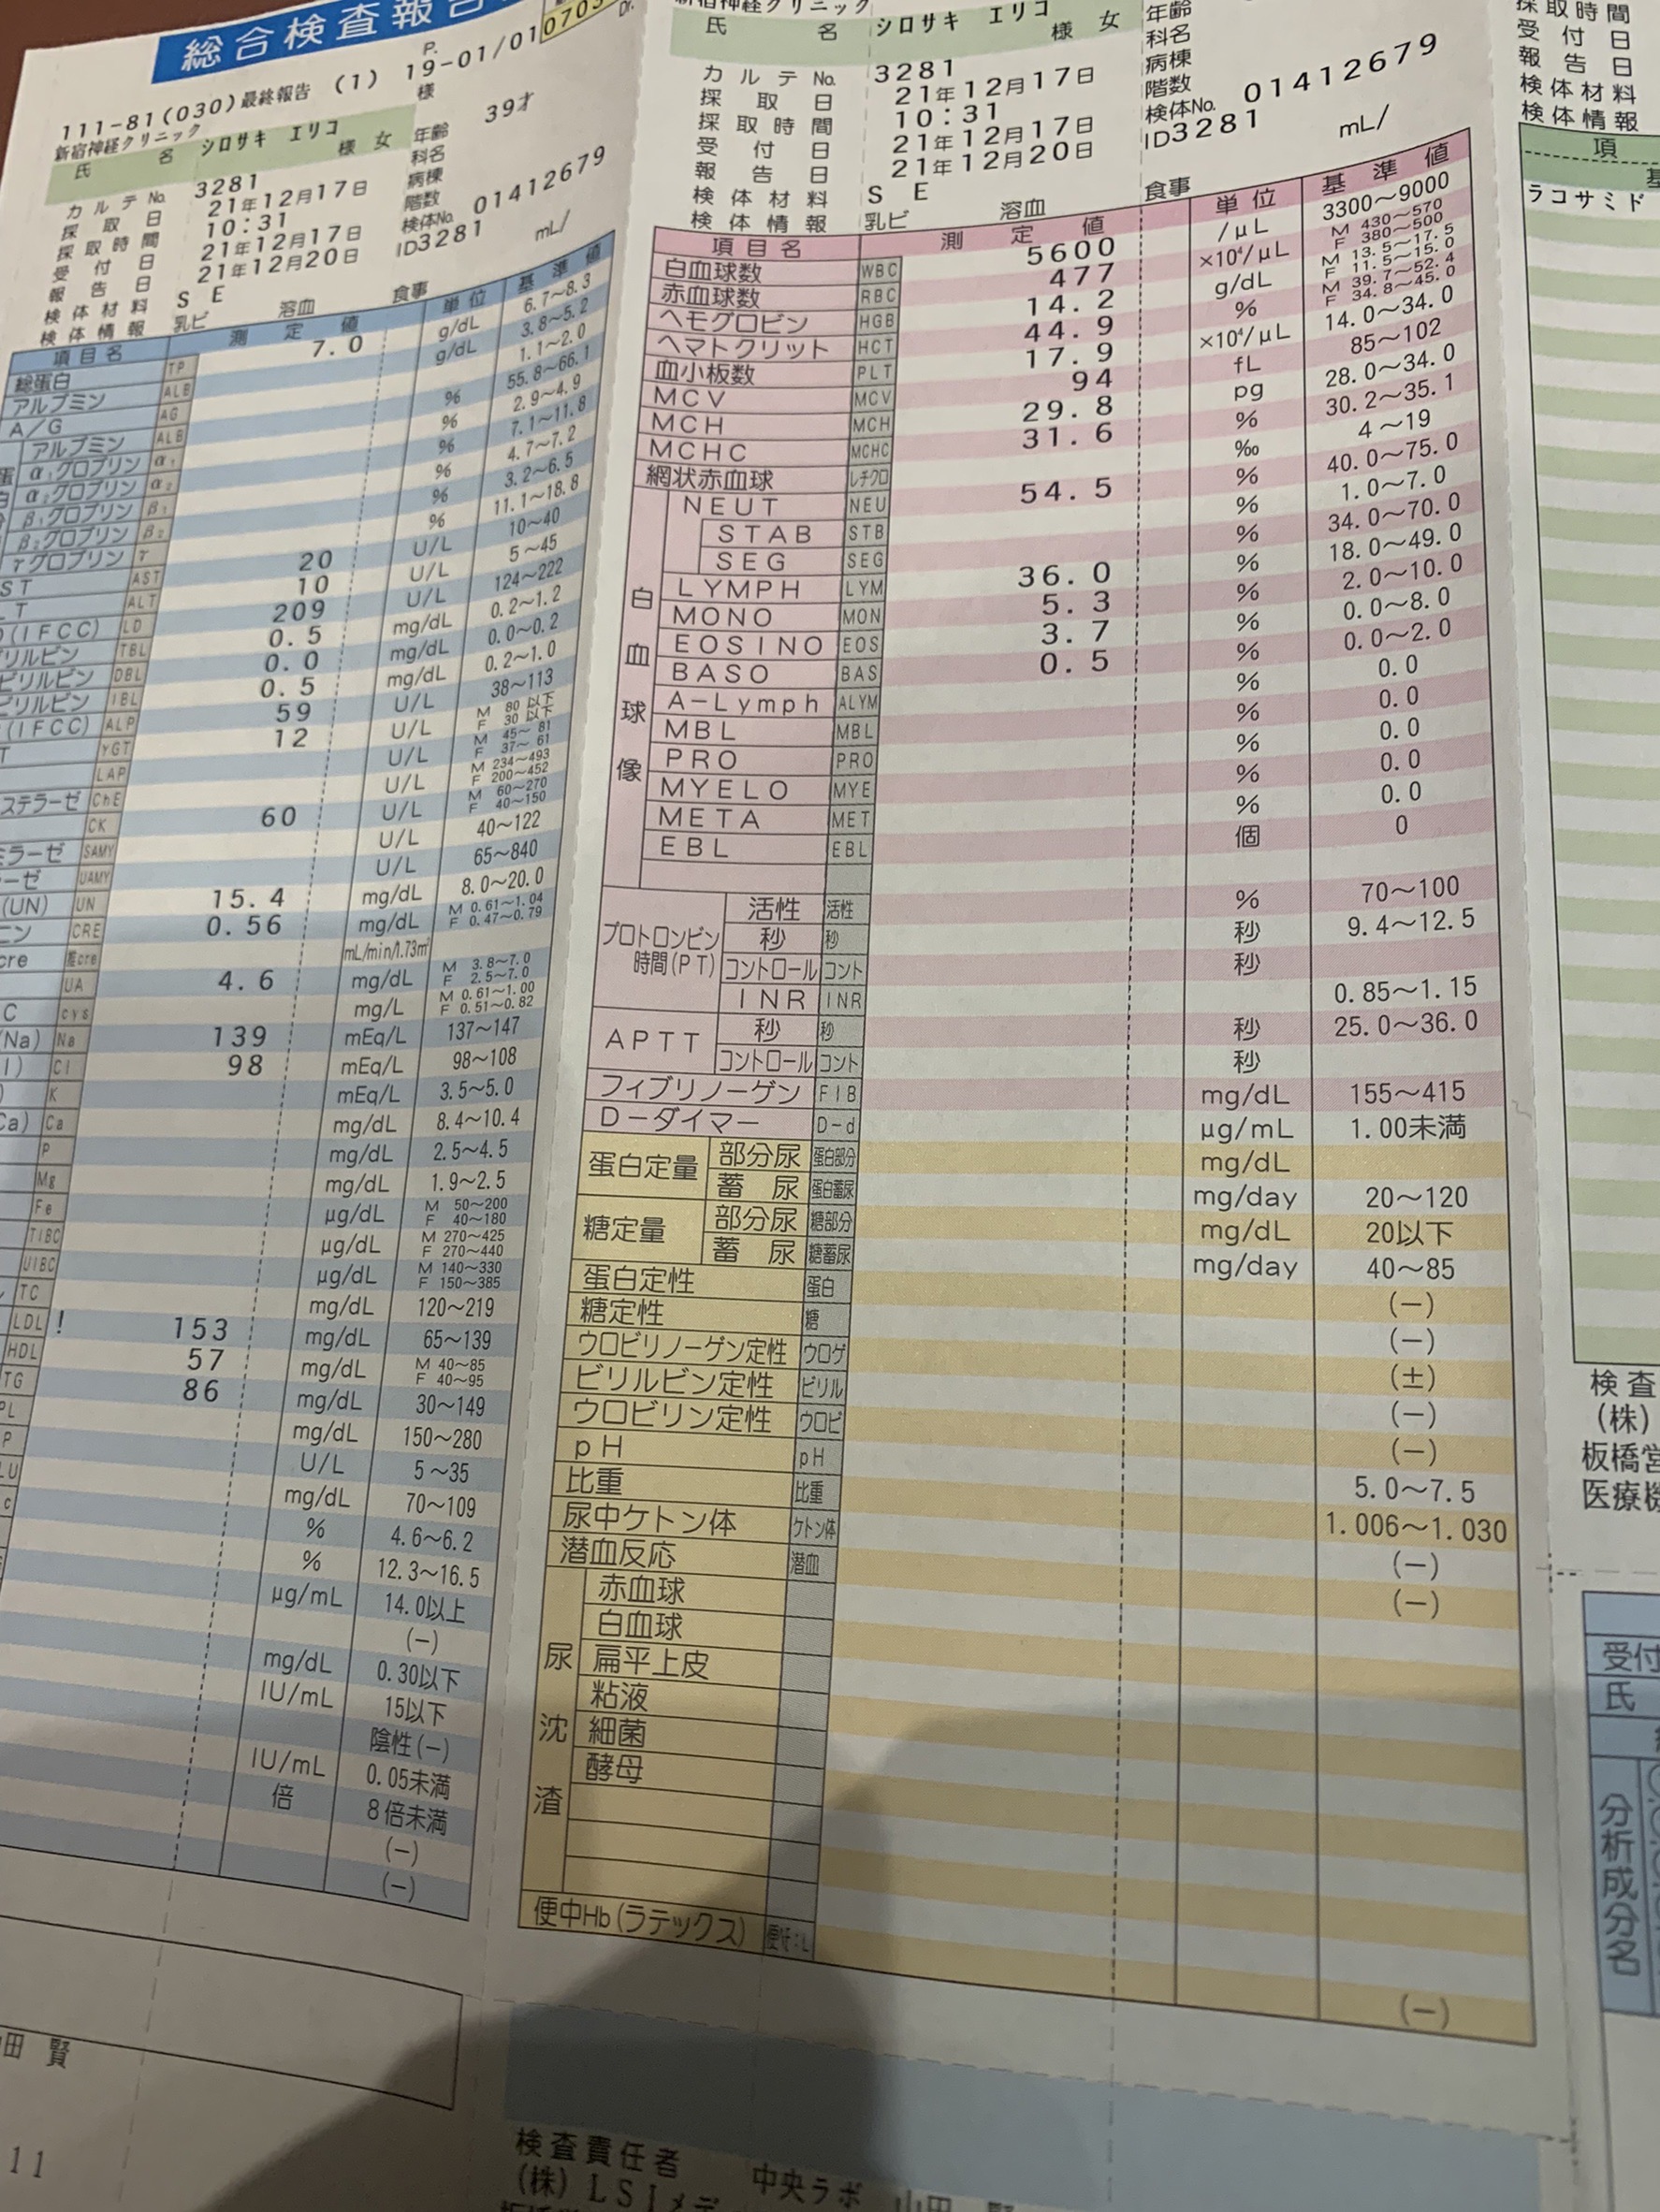 総合検査報告
111-81(030)最終報告 (1) 19-01/01 0703
P.
様
Dr.
新宿神経クリニック
氏 名 シロサキ エリコ 様 女 年齢 39才
カルテNo. 3281 科名
採取日 21年12月17日 病棟
採取時間 10:31 階数
受付日 21年12月17日 検体No. 01412679
報告日 21年12月20日 ID3281 mL/
検体材料 S E
検体情報 乳ビ 溶血 食事
項目名 測定値 単位 基準値
総蛋白 TP 7.0 g/dL 6.7~8.3
アルブミン ALB g/dL 3.8~5.2
A/G AG 1.1~2.0
アルブミン ALB % 55.8~66.1
α₁グロブリン α₁ % 2.9~4.9
α₂グロブリン α₂ % 7.1~11.8
β₁グロブリン β₁ % 4.7~7.2
β₂グロブリン β₂ % 3.2~6.5
γグロブリン γ % 11.1~18.8
ST AST 20 U/L 10~40
LT ALT 10 U/L 5~45
(IFCC) LD 209 U/L 124~222
リルビン TBL 0.5 mg/dL 0.2~1.2
ビリルビン DBL 0.0 mg/dL 0.0~0.2
ビリルビン IBL 0.5 mg/dL 0.2~1.0
(IFCC) ALP 59 U/L 38~113
T γGT 12 U/L M 80以下 F 30以下
LAP U/L M 45~81 F 37~61
ステラーゼ ChE U/L M 234~493 F 200~452
CK 60 U/L M 60~270 F 40~150
ミラーゼ SAMY U/L 40~122
ーゼ UAMY U/L 65~840
(UN) UN 15.4 mg/dL 8.0~20.0
ニン CRE 0.56 mg/dL M 0.61~1.04 F 0.47~0.79
cre 推cre mL/min/1.73㎡
UA 4.6 mg/dL M 3.8~7.0 F 2.5~7.0
C cys mg/L M 0.61~1.00 F 0.51~0.82
(Na) Na 139 mEq/L 137~147
l) Cl 98 mEq/L 98~108
) K mEq/L 3.5~5.0
Ca) Ca mg/dL 8.4~10.4
P mg/dL 2.5~4.5
Mg mg/dL 1.9~2.5
Fe μg/dL M 50~200 F 40~180
TIBC μg/dL M 270~425 F 270~440
UIBC μg/dL M 140~330 F 150~385
TC mg/dL 120~219
LDL ! 153 mg/dL 65~139
HDL 57 mg/dL M 40~85 F 40~95
TG 86 mg/dL 30~149
PL mg/dL 150~280
P U/L 5~35
LU mg/dL 70~109
c % 4.6~6.2
% 12.3~16.5
μg/mL 14.0以上
(-)
mg/dL 0.30以下
IU/mL 15以下
陰性(-)
IU/mL 0.05未満
倍 8倍未満
(-)
(-)
田 賢
11
新宿神経クリニック
氏 名 シロサキ エリコ 様 女 年齢
カルテNo. 3281 科名
採取日 21年12月17日 病棟
採取時間 10:31 階数
受付日 21年12月17日 検体No. 01412679
報告日 21年12月20日 ID3281 mL/
検体材料 S E
検体情報 乳ビ 溶血 食事
項目名 測定値 単位 基準値
白血球数 WBC 5600 /μL 3300~9000
赤血球数 RBC 477 ×10⁴/μL M 430~570 F 380~500
ヘモグロビン HGB 14.2 g/dL M 13.5~17.5 F 11.5~15.0
ヘマトクリット HCT 44.9 % M 39.7~52.4 F 34.8~45.0
血小板数 PLT 17.9 ×10⁴/μL 14.0~34.0
MCV MCV 94 fL 85~102
MCH MCH 29.8 pg 28.0~34.0
MCHC MCHC 31.6 % 30.2~35.1
網状赤血球 レチクロ ‰ 4~19
白血球像
NEUT NEU 54.5 % 40.0~75.0
STAB STB % 1.0~7.0
SEG SEG % 34.0~70.0
LYMPH LYM 36.0 % 18.0~49.0
MONO MON 5.3 % 2.0~10.0
EOSINO EOS 3.7 % 0.0~8.0
BASO BAS 0.5 % 0.0~2.0
A-Lymph ALYM % 0.0
MBL MBL % 0.0
PRO PRO % 0.0
MYELO MYE % 0.0
META MET % 0.0
EBL EBL 個 0
プロトロンビン時間(PT)
活性 活性 % 70~100
秒 秒 秒 9.4~12.5
コントロール コント 秒
INR INR 0.85~1.15
APTT
秒 秒 秒 25.0~36.0
コントロール コント 秒
フィブリノーゲン FIB mg/dL 155~415
D-ダイマー D-d μg/mL 1.00未満
蛋白定量 部分尿 蛋白部分 mg/dL
蓄尿 蛋白蓄尿 mg/day 20~120
糖定量 部分尿 糖部分 mg/dL 20以下
蓄尿 糖蓄尿 mg/day 40~85
蛋白定性 蛋白 (-)
糖定性 糖 (-)
ウロビリノーゲン定性 ウロゲ (±)
ビリルビン定性 ビリル (-)
ウロビリン定性 ウロビ (-)
pH pH 5.0~7.5
比重 比重 1.006~1.030
尿中ケトン体 ケトン体 (-)
潜血反応 潜血 (-)
尿沈渣
赤血球
白血球
扁平上皮
粘液
細菌
酵母
便中Hb(ラテックス) (-)
検査責任者 中央ラボ 山田 賢
(株)LSIメデ
採取時間
受付日
報告日
検体材料
検体情報
項
ラコサミド
検査
(株)
板橋営
医療機
受付
氏
分析成分名